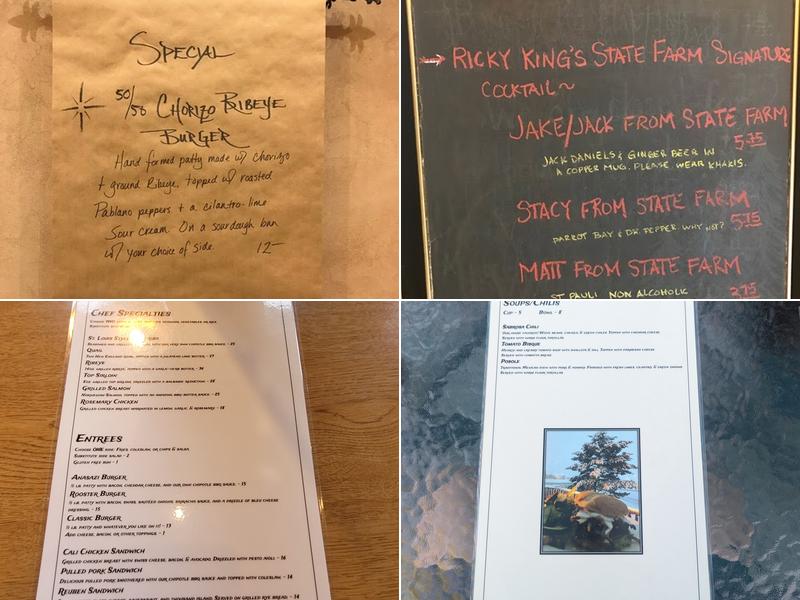 SPECIAL
50/50 CHORIZO RIBEYE
BURGER
Hand formed patty made w/ chorizo
+ ground Ribeye, topped w/ roasted
Pablano peppers + a cilantro-lime
Sour cream. On a sourdough bun
w/ your choice of side. 12-
RICKY KING'S STATE FARM SIGNATURE
COCKTAIL~
JAKE/JACK FROM STATE FARM
5.75
JACK DANIELS & GINGER BEER IN
A COPPER MUG. PLEASE WEAR KHAKIS.
STACY FROM STATE FARM
PARROT BAY & DR. PEPPER. WHY NOT? 5.75
MATT FROM STATE FARM
ST. PAULI NON ALCOHOLIC 3.75
CHEF SPECIALTIES
ST. LOUIS STYLE
QUAIL
RIBEYE
TOP SIRLOIN
GRILLED SALMON
ROSEMARY CHICKEN
GRILLED CHICKEN BREAST MARINATED IN LEMON, GARLIC & ROSEMARY - 18
ENTREES
CHOOSE ONE SIDE: FRIES, COLESLAW, OR CHIPS & SALSA
SUBSTITUTE SIDE SALAD - 2
GLUTEN FREE BUN - 1
ANASAZI BURGER
½ LB. PATTY WITH BACON, CHEDDAR CHEESE, AND OUR CHIPOTLE BBQ SAUCE. - 15
ROOSTER BURGER
½ LB. PATTY WITH BACON, SWISS, SAUTÉED ONIONS, SRIRACHA SAUCE, AND A DRIZZLE OF BLEU CHEESE
DRESSING - 15
CLASSIC BURGER
½ LB. PATTY AND WHATEVER YOU LIKE ON IT! - 13
ADD CHEESE, BACON, OR OTHER TOPPINGS - 1
CALI CHICKEN SANDWICH
GRILLED CHICKEN BREAST WITH SWISS CHEESE, BACON, & AVOCADO. DRIZZLED WITH PESTO AIOLI - 16
PULLED PORK SANDWICH
DELICIOUS PULLED PORK SMOTHERED WITH OUR CHIPOTLE BBQ SAUCE AND TOPPED WITH COLESLAW. - 14
REUBEN SANDWICH
AND THOUSAND ISLAND. SERVED ON GRILLED RYE BREAD. - 14
SOUPS/CHILIS
CUP - 5 BOWL - 8
CHILI
TOMATO BISQUE
POSOLE